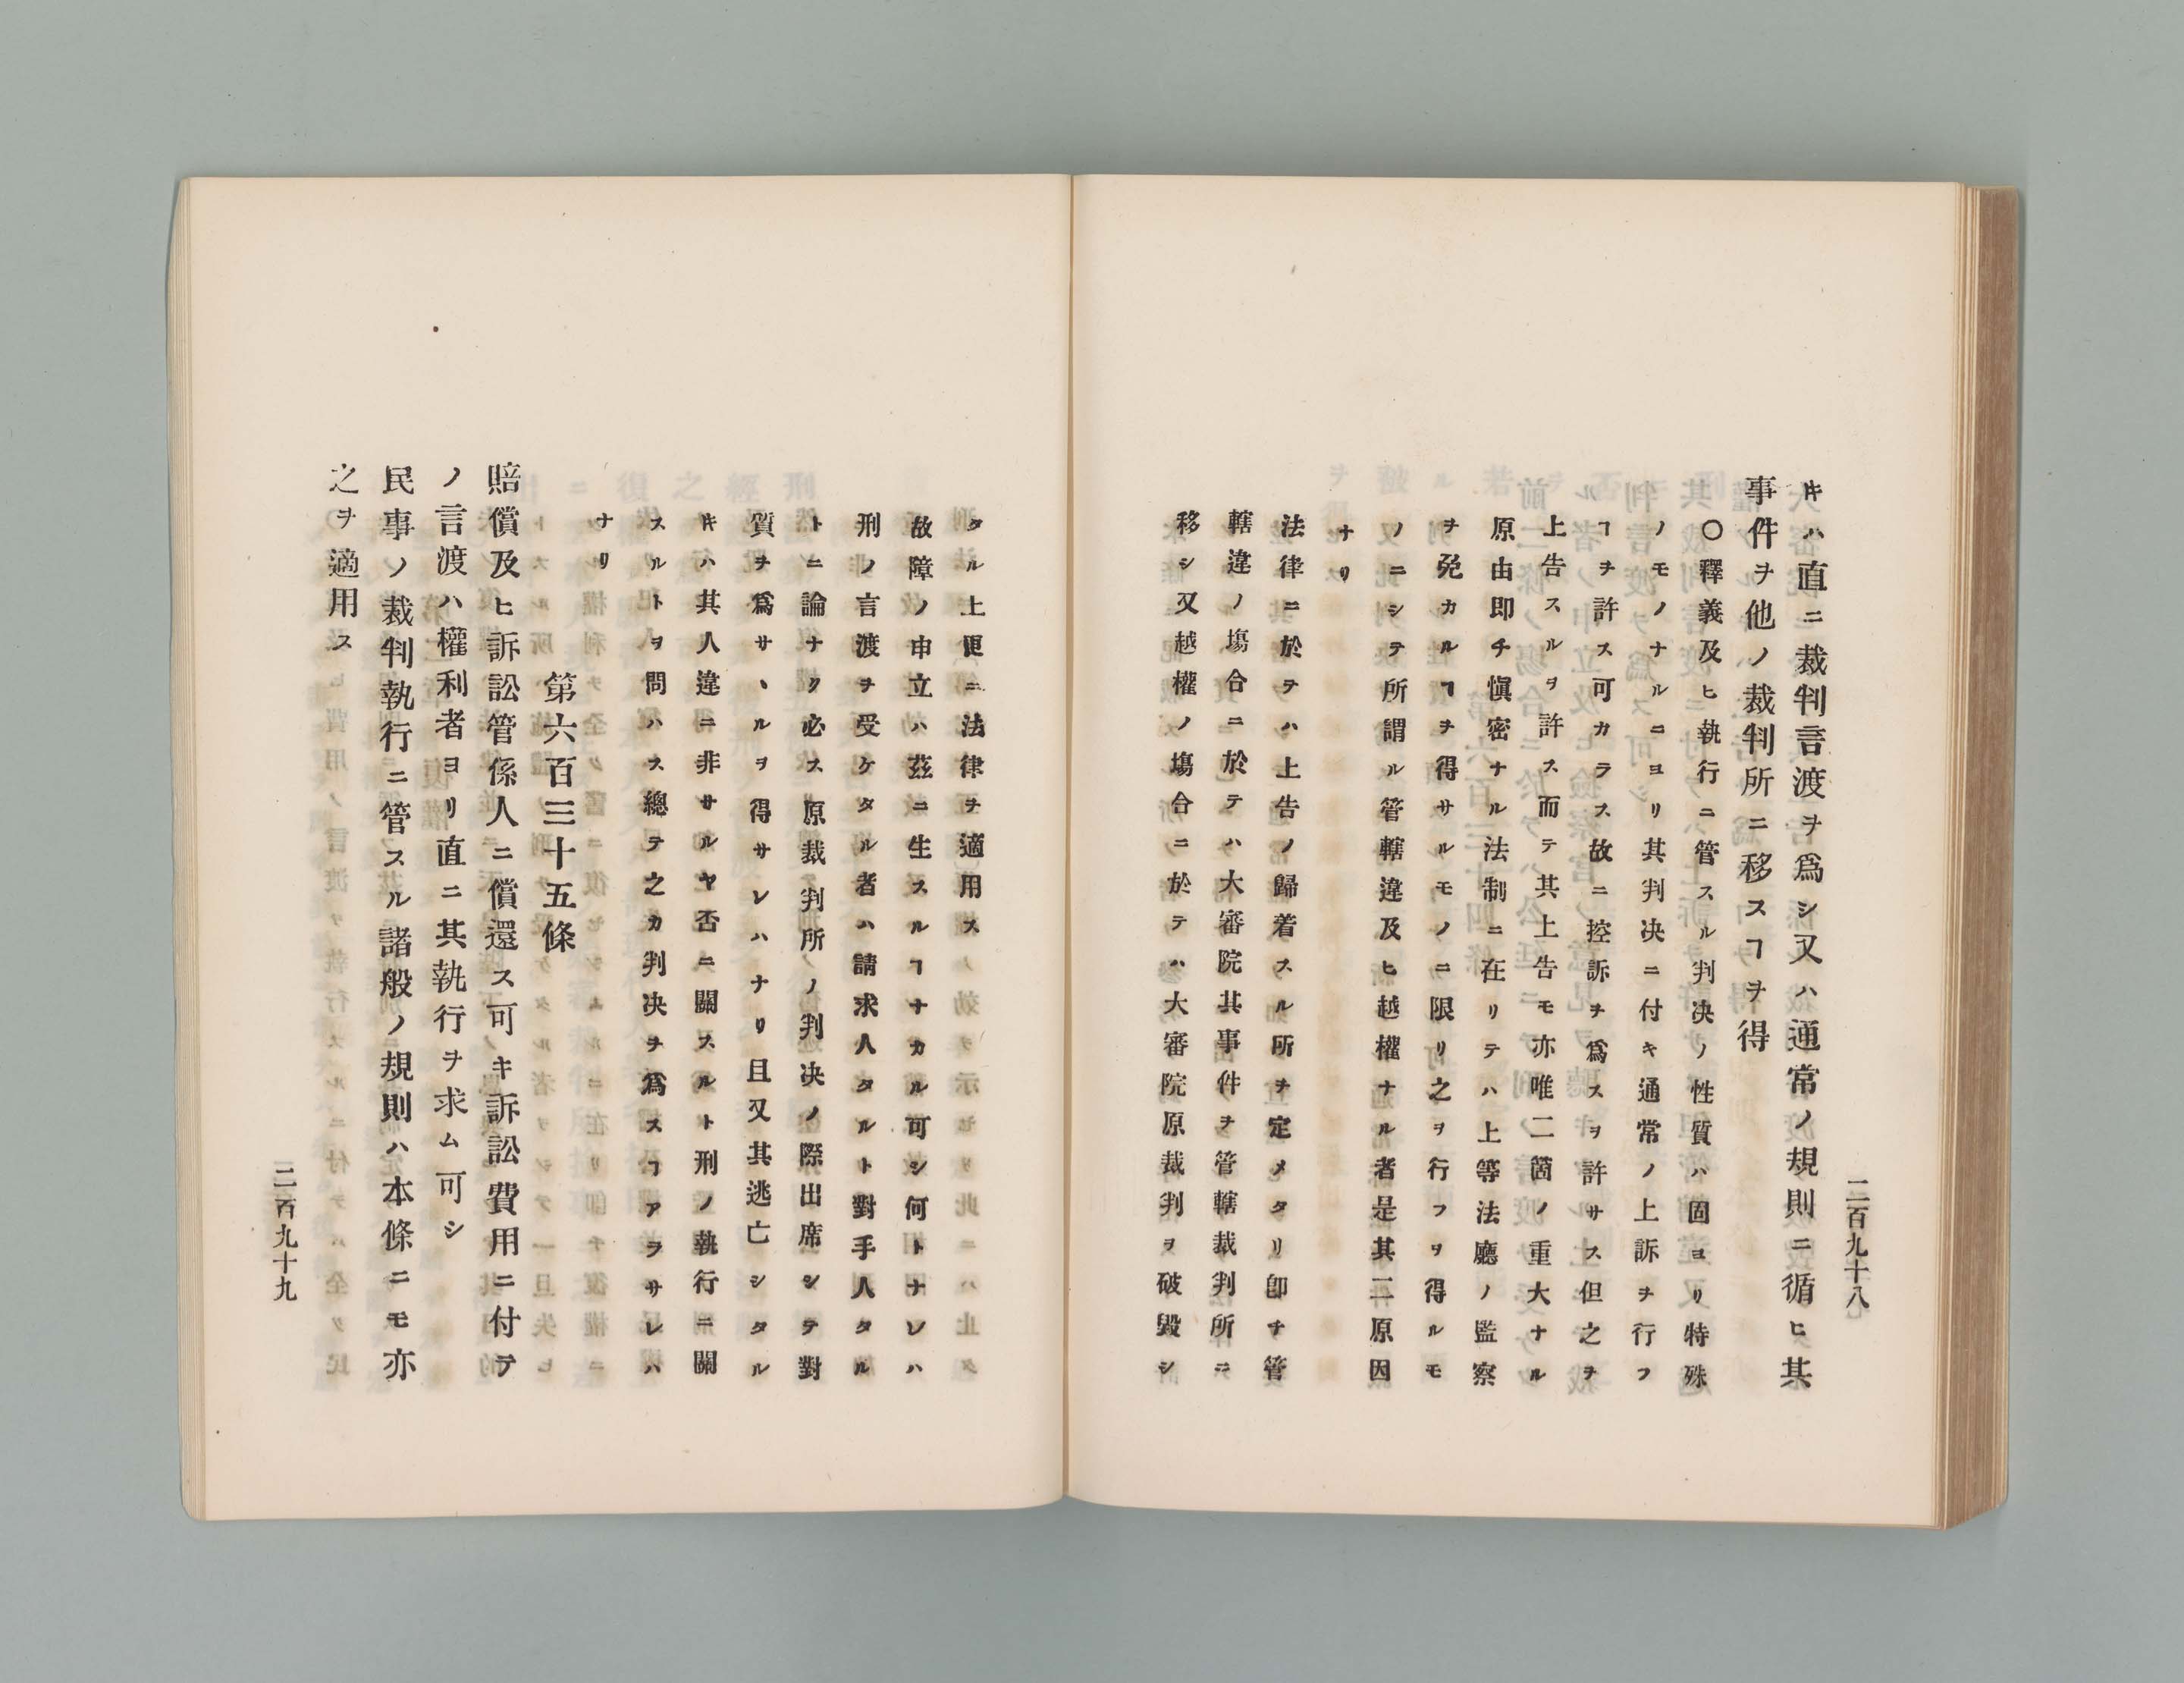 キハ直ニ裁判言渡ヲ爲シ又ハ通常ノ規則ニ循ヒ其
事件ヲ他ノ裁判所ニ移スヿヲ得
〇釋義及ヒ執行ニ管スル判决ノ性質ハ固ヨリ特殊
ノモノナルニヨリ其判决ニ付キ通常ノ上訴ヲ行フ
ヿヲ許ス可カラス故ニ控訴ヲ爲スヲ許サス但之ヲ
上告スルヲ許ス而テ其上告モ亦唯二箇ノ重大ナル
原由即チ愼密ナル法制ニ在リテハ上等法廳ノ監察
ヲ免カルヿヲ得サルモノニ限リ之ヲ行フヲ得ルモ
ノニシテ所謂ル管轄違及ヒ越權ナル者是其二原因
ナリ
法律ニ於テハ上告ノ歸着スル所ヲ定メタリ卽チ管
轄違ノ塲合ニ於テハ大審院其事件ヲ管轄裁判所ニ
移シ又越權ノ塲合ニ於テハ大審院原裁判ヲ破毀シ
二百九十八
タル上更ニ法律ヲ適用ス
故障ノ申立ハ茲ニ生スルヿナカル可シ何トナレハ
刑ノ言渡ヲ受ケタル者ハ請求人タルト對手人タル
トニ論ナク必ス原裁判所ノ判决ノ際出席シテ對
質ヲ爲サヽルヲ得サレハナリ且又其逃亡シタル
キハ其人違ニ非サルヤ否ニ關スルト刑ノ執行ニ關
スルトヲ問ハス總テ之カ判决ヲ爲スヿアラサレハ
ナリ
第六百三十五條
賠償及ヒ訴訟管係人ニ償還ス可キ訴訟費用ニ付テ
ノ言渡ハ權利者ヨリ直ニ其執行ヲ求ム可シ
民事ノ裁判執行ニ管スル諸般ノ規則ハ本條ニモ亦
之ヲ適用ス
二百九十九